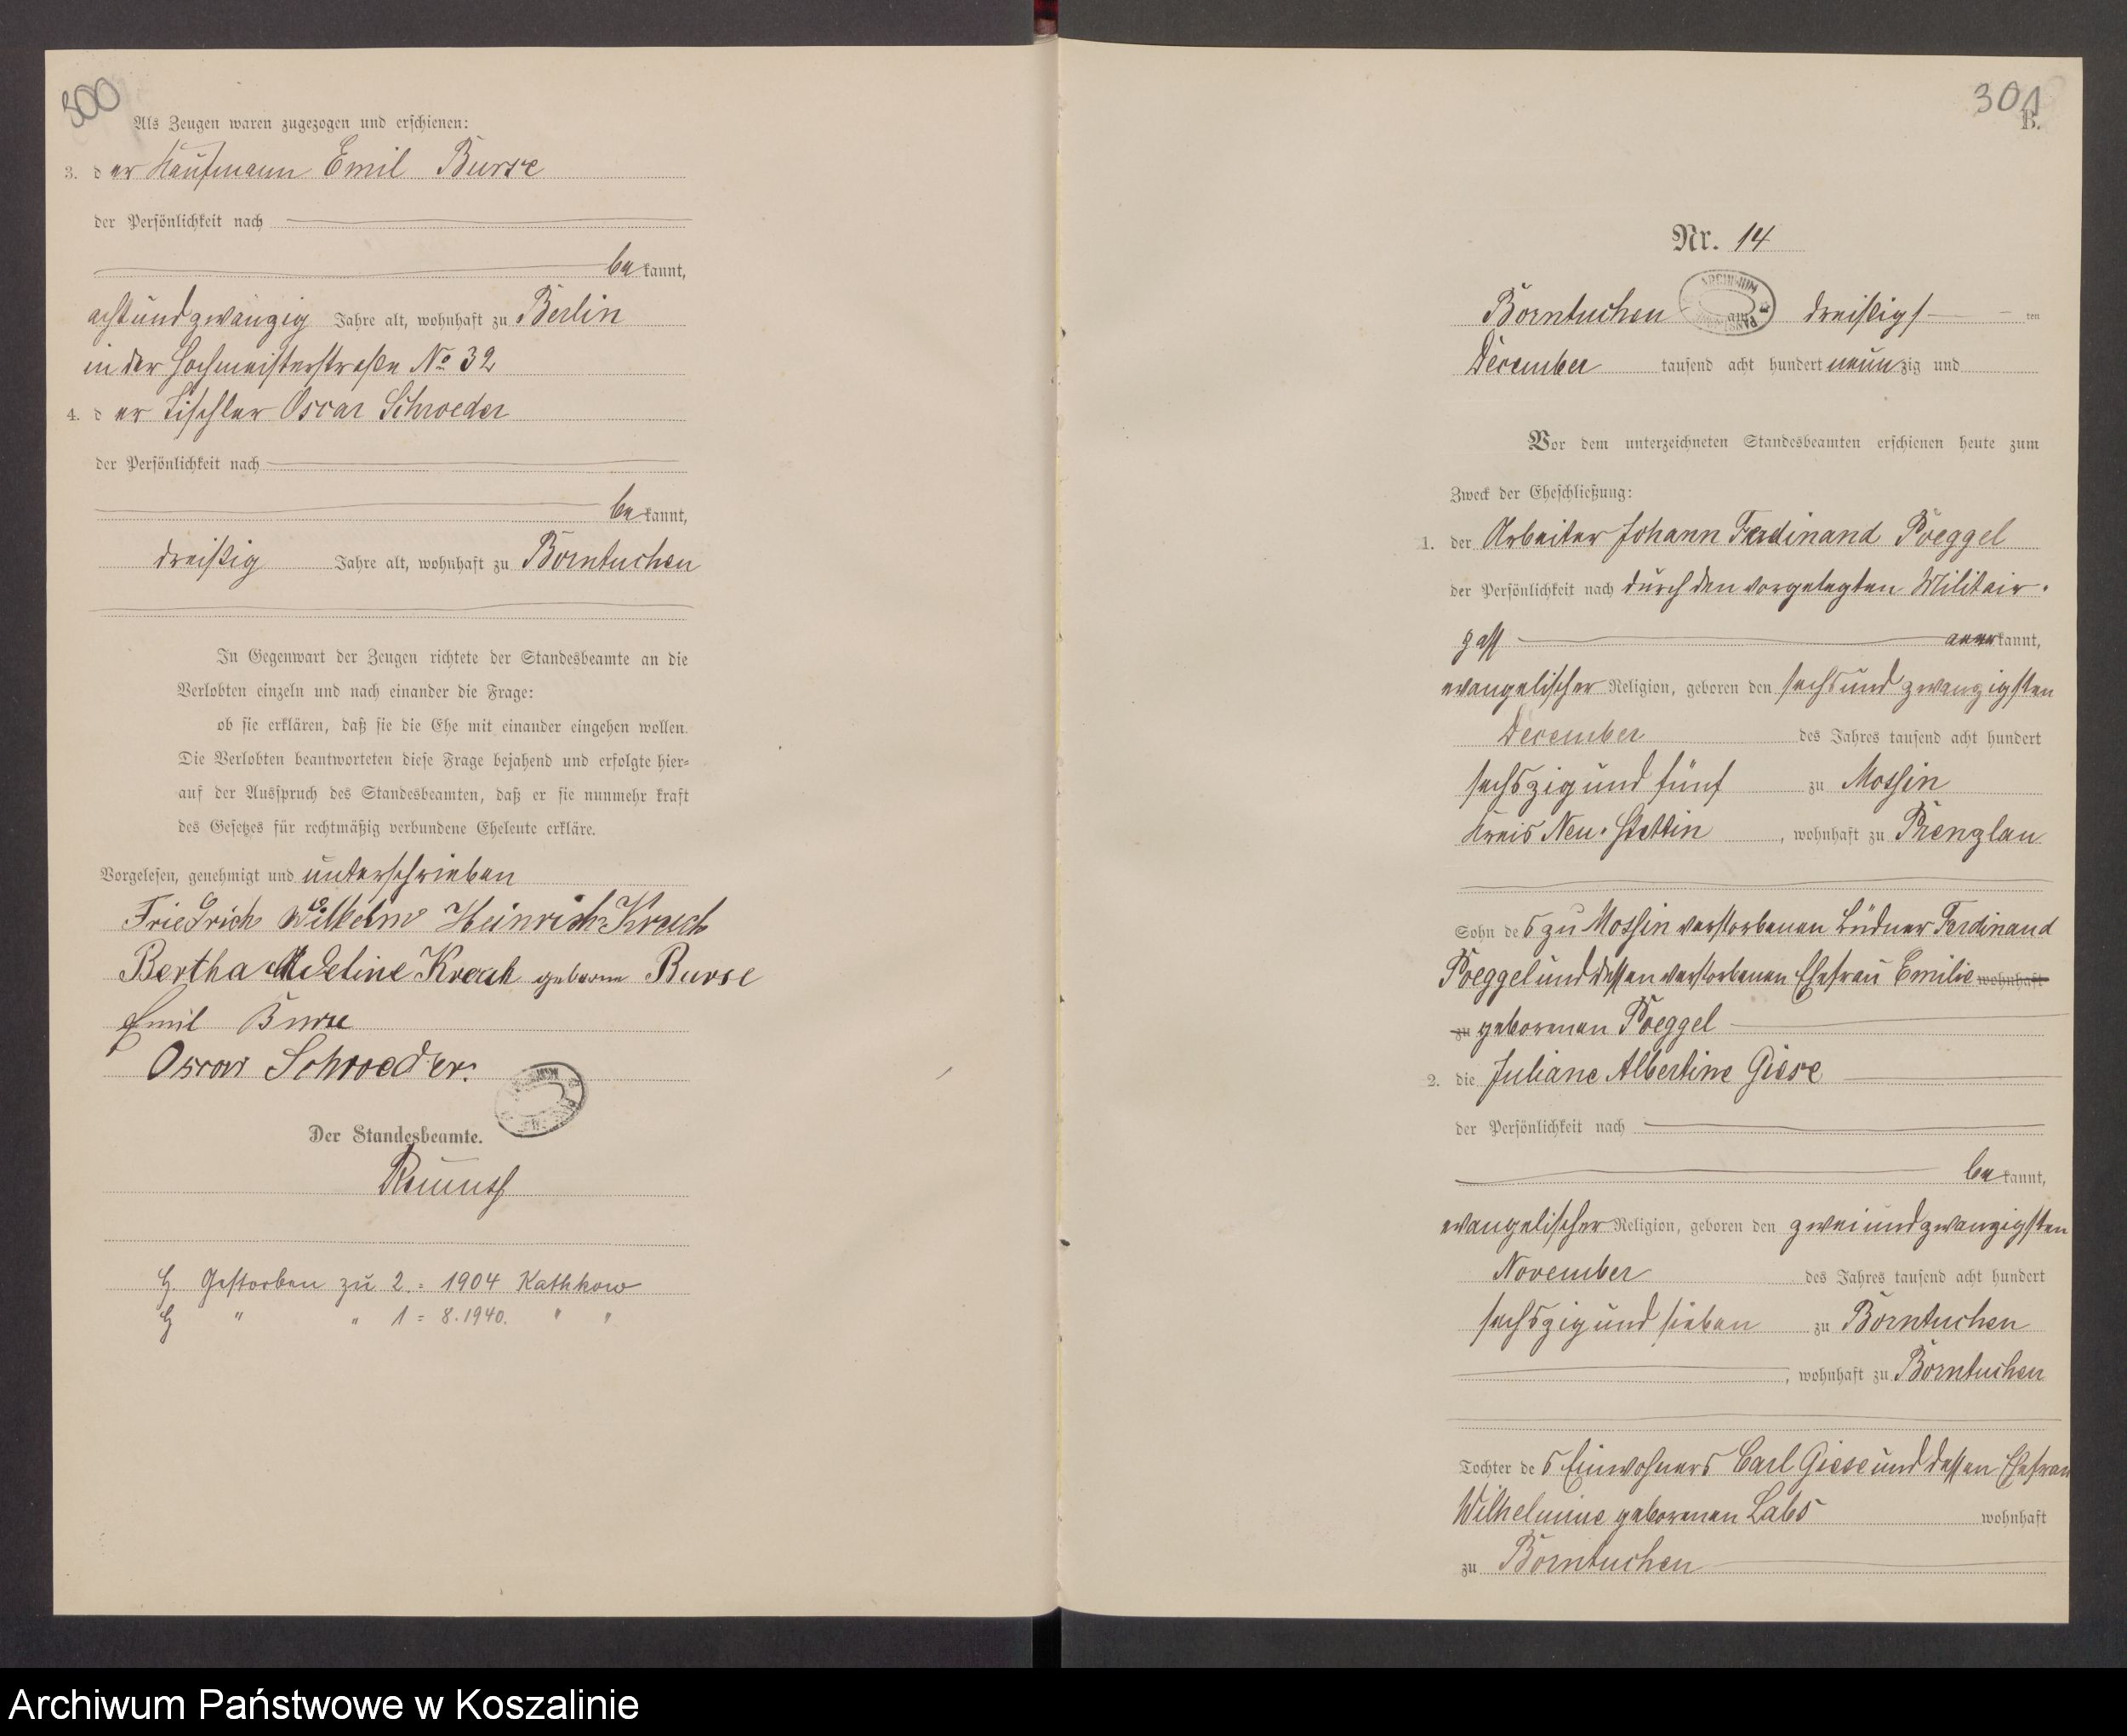 300
Als Zeugen waren zugezogen und erschienen:
3. der Kaufmann Emil Burse
der Persönlichkeit nach
bekannt,
achtundzwanzig Jahre alt, wohnhaft zu Berlin
in der Hochmeisterstraße No 32
4. der Tischler Oscar Schroeder
der Persönlichkeit nach
bekannt,
dreißig Jahre alt, wohnhaft zu Borntuchen
In Gegenwart der Zeugen richtete der Standesbeamte an die
Verlobten einzeln und nach einander die Frage:
ob sie erklären, daß sie die Ehe mit einander eingehen wollen.
Die Verlobten beantworteten diese Frage bejahend und erfolgte hier-
auf der Ausspruch des Standesbeamten, daß er sie nunmehr kraft
des Gesetzes für rechtmäßig verbundene Eheleute erkläre.
Vorgelesen, genehmigt und unterschrieben
Friedrich Wilhelm Heinrich
Bertha geborne Burse
Emil Burse
Oscar Schroeder.
Der Standesbeamte.
Gestorben zu 2. = 1904 Kathkow
" " 1 = 8.1940. " "
301
B.
Nr. 14
Borntuchen am dreißigsten
December tausend acht hundert neunzig und
Vor dem unterzeichneten Standesbeamten erschienen heute zum
Zweck der Eheschließung:
1. der Arbeiter Johann Ferdinand Poeggel
der Persönlichkeit nach durch den vorgelegten Militair-
paß anerkannt,
evangelischer Religion, geboren den sechsundzwanzigsten
December des Jahres tausend acht hundert
sechszig und fünf zu Mossin
Kreis Neu-Stettin, wohnhaft zu Prenzlau
Sohn des zu Mossin verstorbenen Büdner Ferdinand
Poeggel und dessen verstorbenen Ehefrau Emilie wohnhaft
zu geborenen Poeggel
2. die Juliane Albertine Giese
der Persönlichkeit nach
bekannt,
evangelischer Religion, geboren den zweiundzwanzigsten
November des Jahres tausend acht hundert
sechszig und sieben zu Borntuchen
, wohnhaft zu Borntuchen
Tochter des Einwohners Carl Giese und dessen Ehefrau
Wilhelmine geborenen Labs wohnhaft
zu Borntuchen
Archiwum Państwowe w Koszalinie